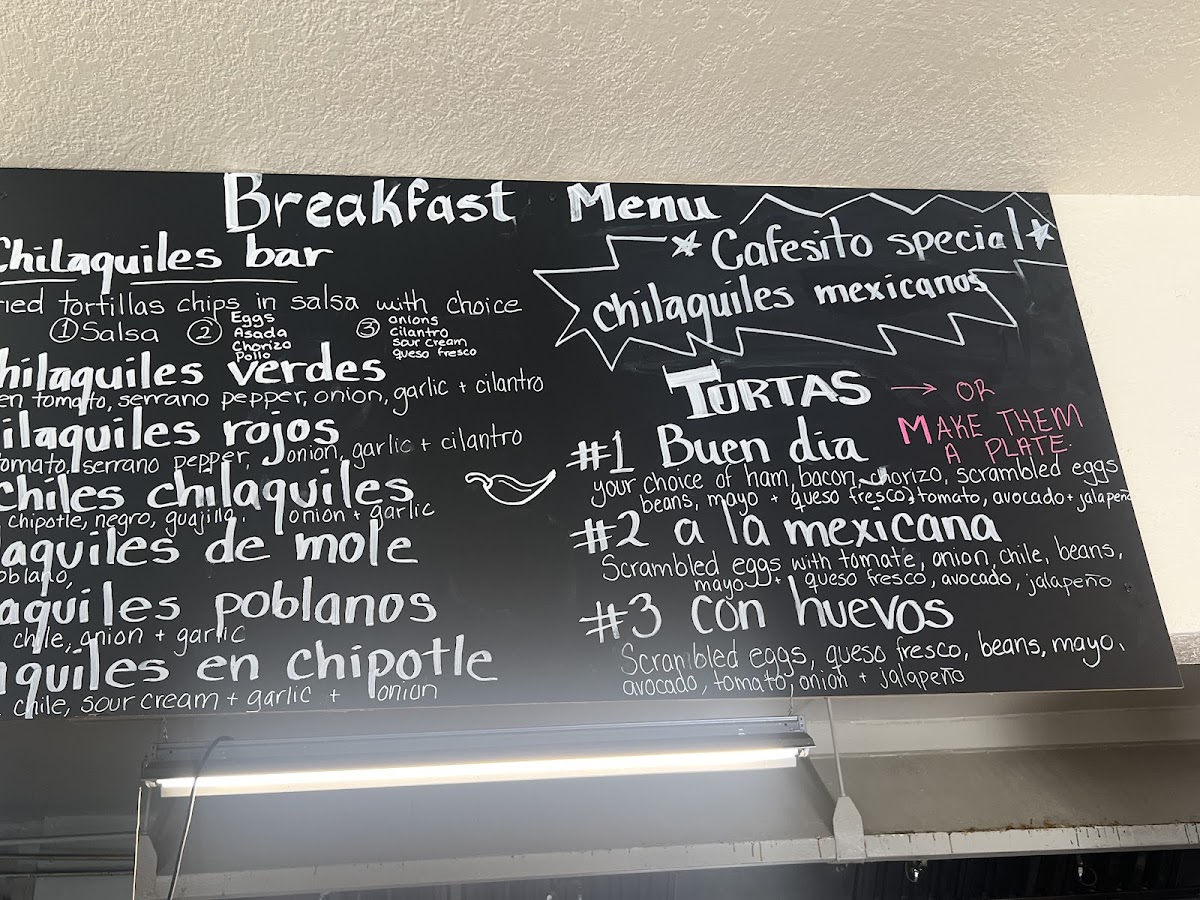 Breakfast Menu
Chilaquiles bar
ried tortillas chips in salsa with choice
① Salsa ② Eggs
Asada
Chorizo
Pollo
③ onions
Cilantro
sour cream
queso fresco
hilaquiles verdes
en tomato, serrano pepper, onion, garlic + cilantro
ilaquiles rojos
tomato, serrano pepper, onion, garlic + cilantro
chiles chilaquiles
chipotle, negro, guajillo, onion + garlic
laquiles de mole
oblano,
aquiles poblanos
chile, onion + garlic
aquiles en chipotle
chile, sour cream + garlic + onion
Cafesito special
chilaquiles mexicanos
TORTAS → OR
MAKE THEM
A PLATE.
#1 Buen dia
your choice of ham, bacon, chorizo, scrambled eggs
beans, mayo + queso fresco, tomato, avocado + jalapeño
#2 a la mexicana
Scrambled eggs with tomate, onion, chile, beans,
mayo + queso fresco, avocado, jalapeño
#3 con huevos
Scrambled eggs, queso fresco, beans, mayo,
avocado, tomato, onion + jalapeño